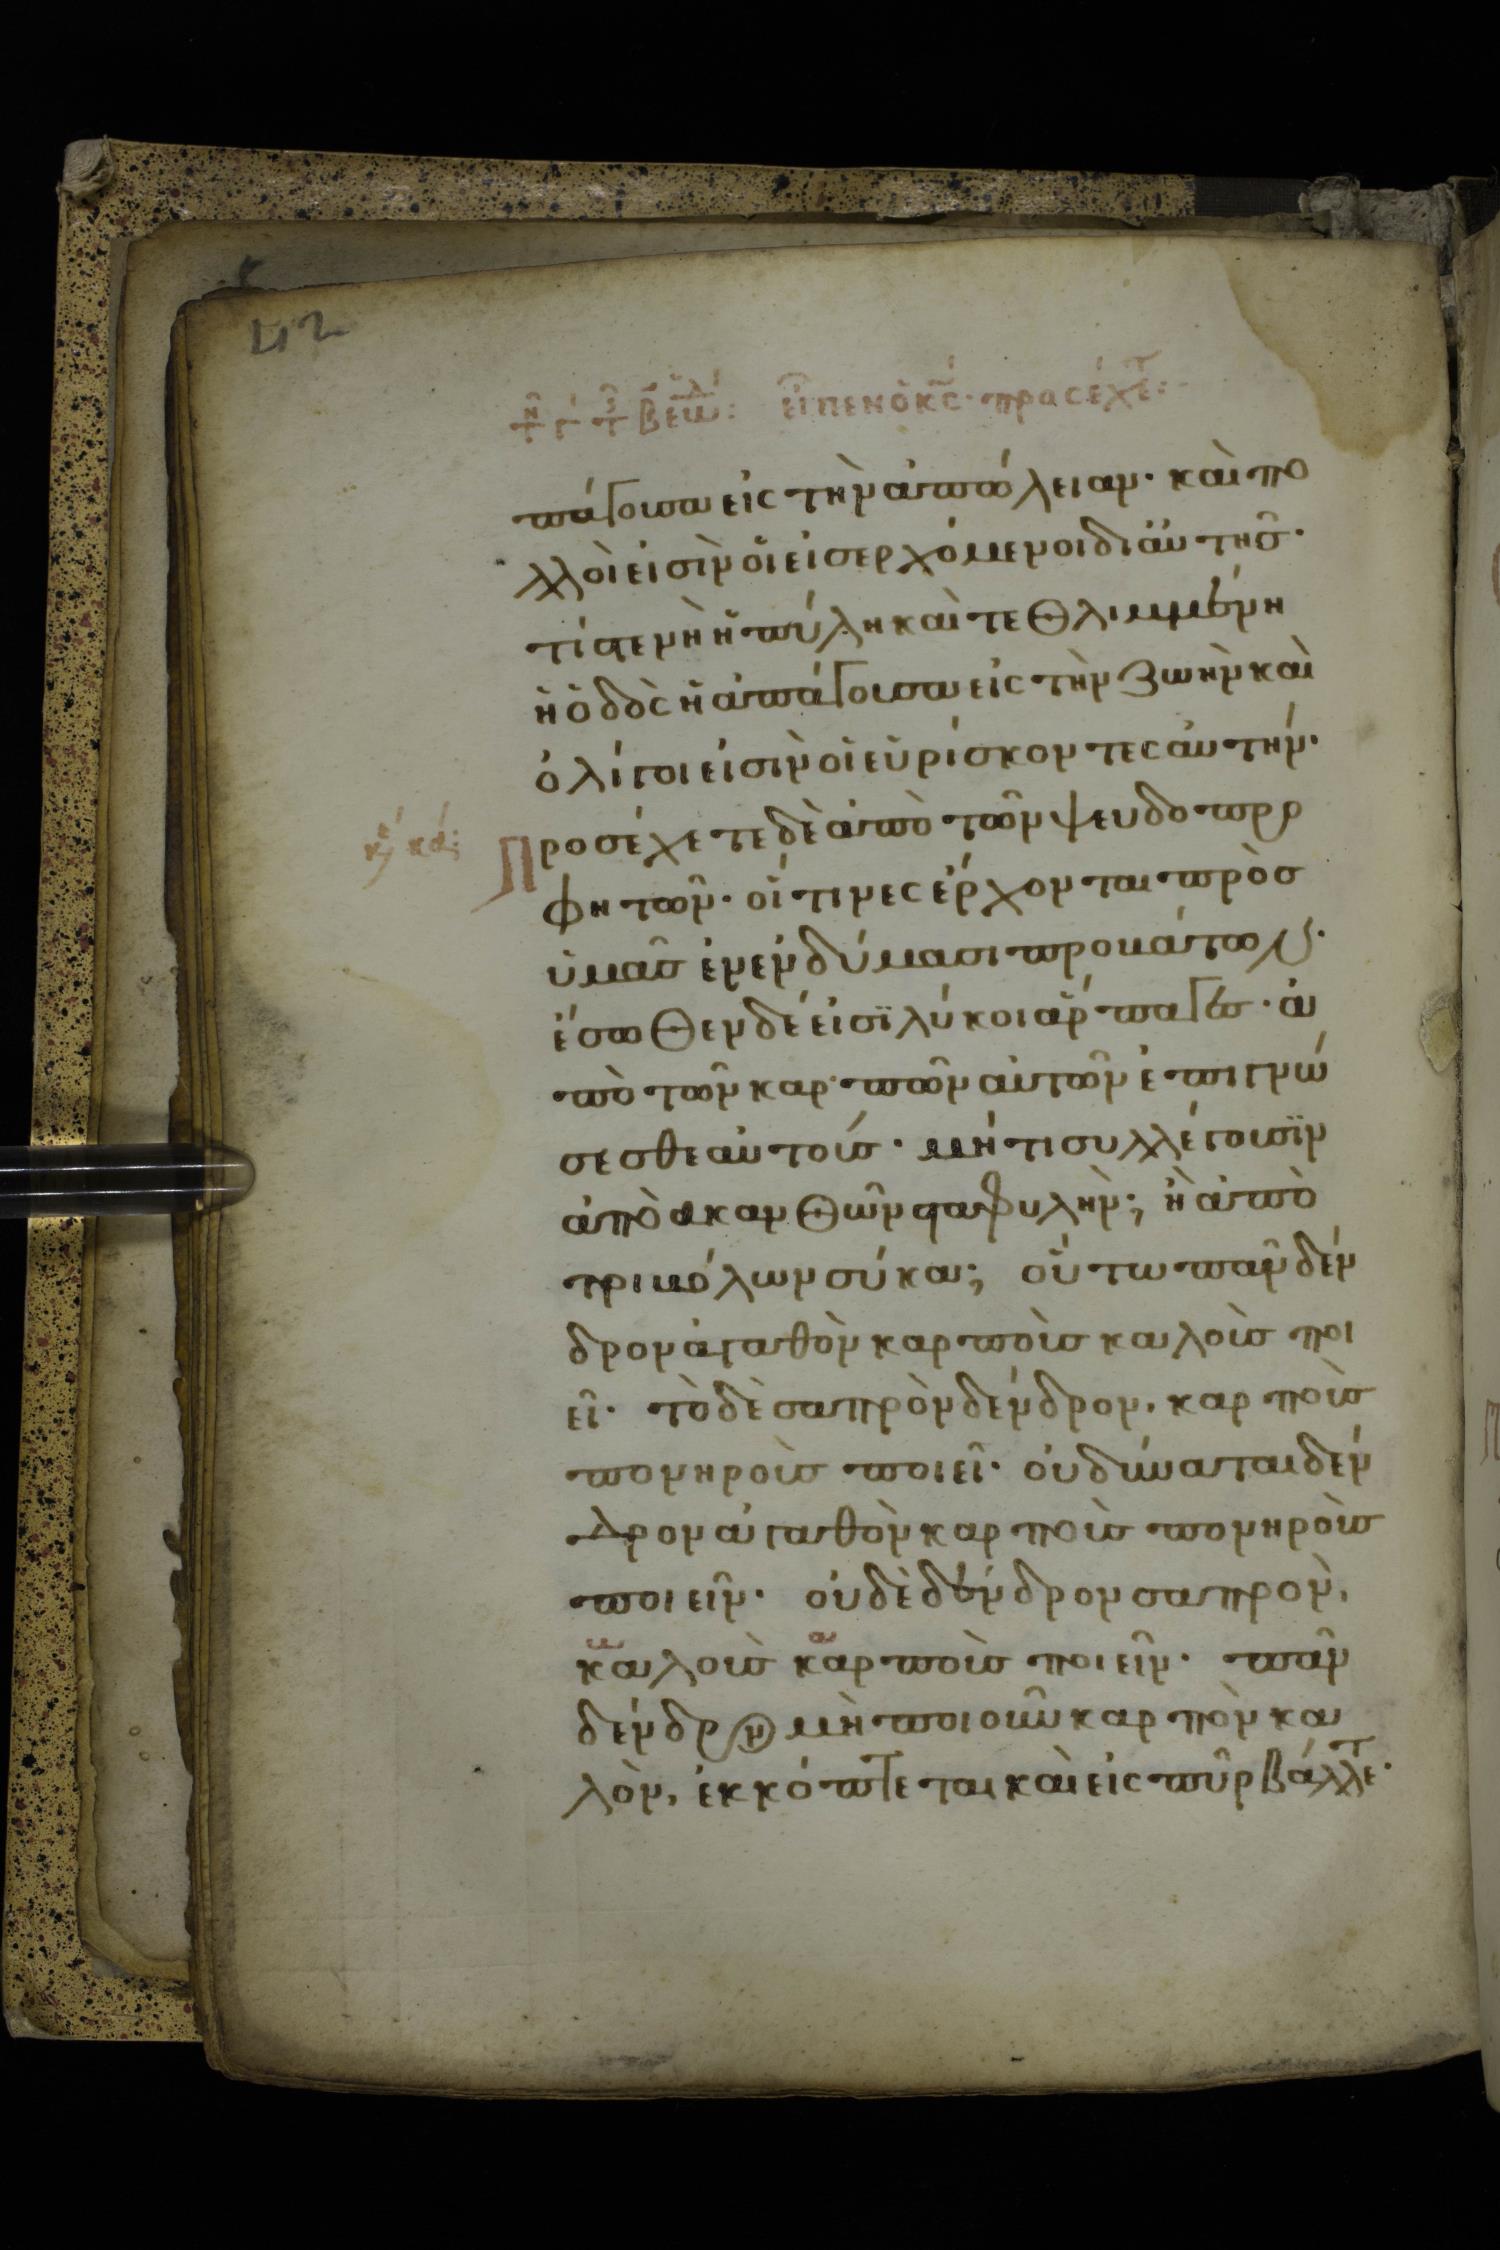 42
εἶπεν ὁ κς· προσέχετ:
πάγουσα εἰς τὴν ἀπώλειαν· καὶ πο
λλοὶ εἰσὶν οἱ εἰσερχόμενοι δι αὐτῆς·
τί στενὴ ἡ πύλη καὶ τεθλιμμένη
ἡ ὁδὸς ἡ ἀπάγουσα εἰς τὴν ζωὴν καὶ
ὀλίγοι εἰσὶν οἱ εὑρίσκοντες αὐτήν·
Προσέχετε δὲ ἀπὸ τῶν ψευδοπρο
φητῶν· οἵτινες ἔρχονται πρὸς
ὑμᾶς ἐν ἐνδύμασι προβάτων·
ἔσωθεν δέ εἰσϊ λύκοι ἅρπαγες· ἀ
πὸ τῶν καρπῶν αὐτῶν ἐπιγνώ
σεσθε αὐτούς· μήτι συλλέγουσϊν
ἀπὸ ακανθῶν σταφυλὴν; ἢ ἀπὸ
τριβόλων σύκα; οὕτω πᾶν δέν
δρον ἀγαθὸν καρποὺς καλοὺς ποι
εῖ· τὸ δὲ σαπρὸν δένδρον, καρποὺς
πονηροὺς ποιεῖ· οὐ δύναται δέν
δρον ἀγαθὸν καρποὺς πονηροὺς
ποιεῖν· οὐδὲ δένδρον σαπρὸν,
καλοὺς καρποὺς ποιεῖν· πᾶν
δένδρον μὴ ποιοῦν καρπὸν κα
λὸν, ἐκκόπτεται καὶ εἰς πῦρ βάλλετ·